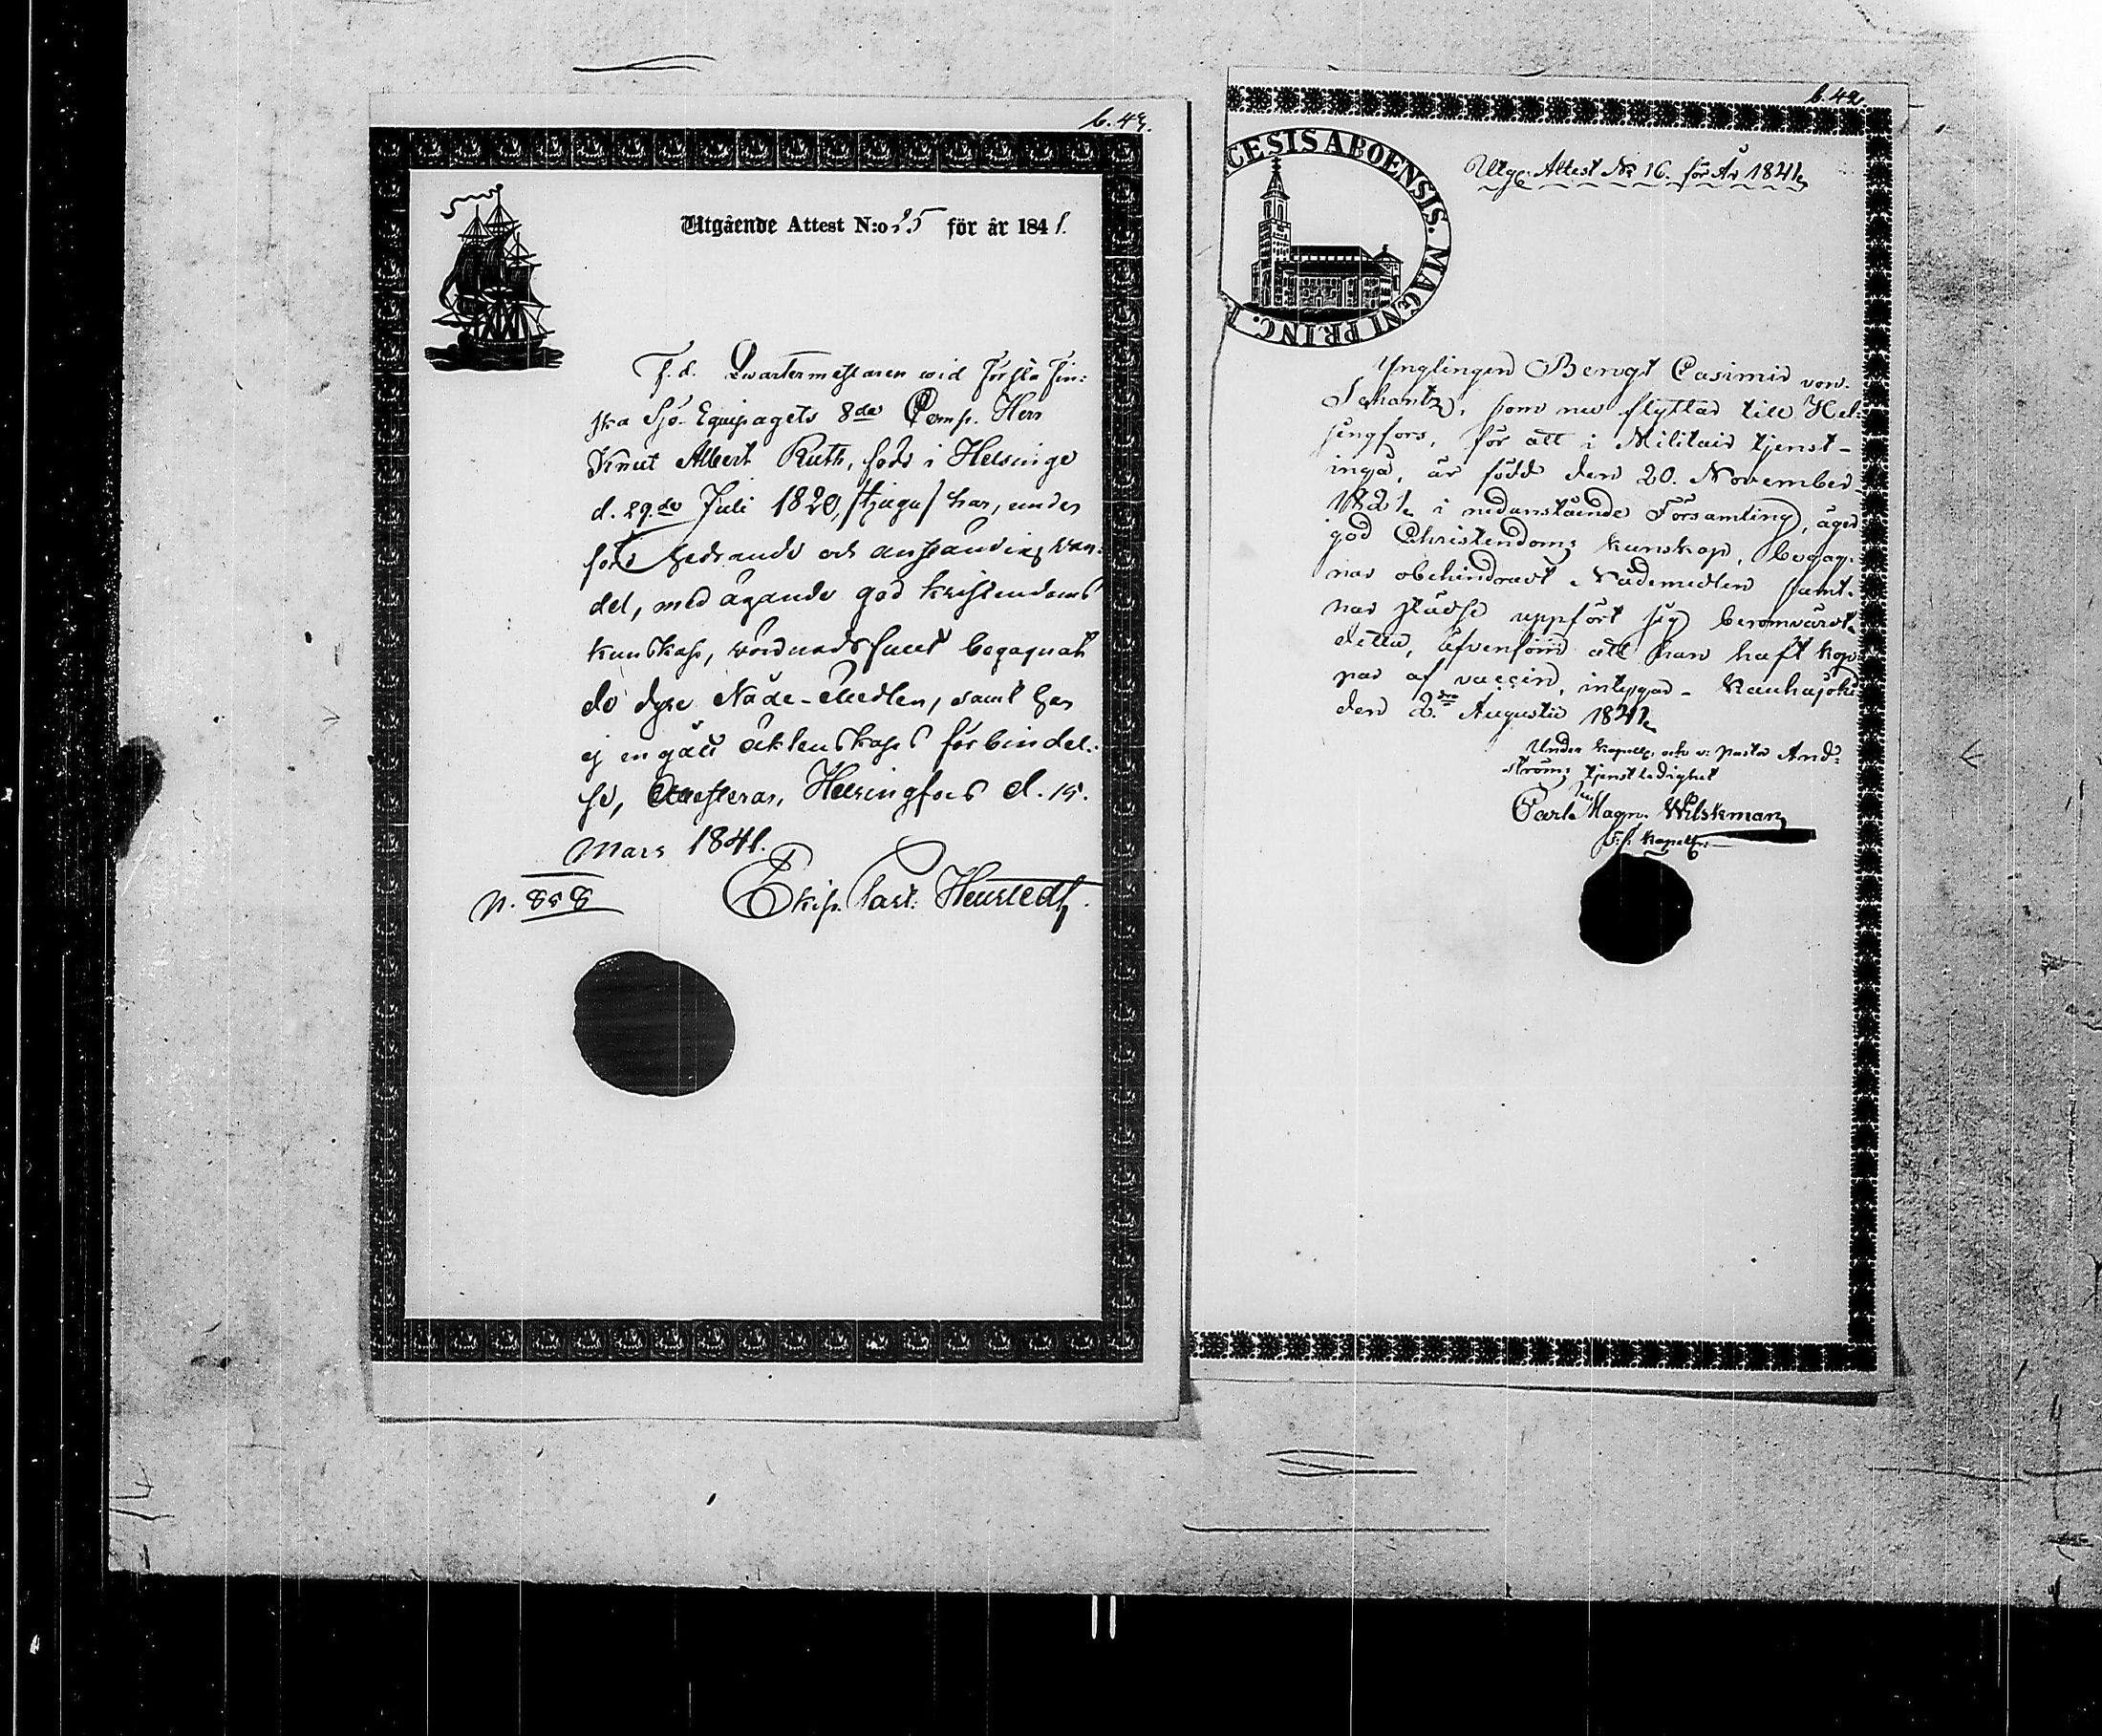 b. 43.
Utgående Attest N:o 25 för år 1841.
F. d. Qvartermästaren wid Första Fin-
ska Sjö-Equipagets 8de Comp. Herr
Knut Albert Ruth, född i Helsinge
d. 29de Juli 1820, /tjugu/ har, under
fört hedrande och anständig van-
del, med ägande god kristendoms
kunskap, wördnadsfullt begagnat
de dyra Nåde-Medlen, samt har
ej ingått äktenskaps förbindel-
se, Attesteras, Helsingfors d. 15.
Mars 1841.
N. 858
Ekip. Past.
b. 42.
CESIS ABOENSIS. MAGNI PRINC.
Utgl. Attest No 16. för År 1841
Ynglingen Bengt Casimir von
Schantz, som nu flyttar till Hel-
singfors, för att i Militair tjenst
ingå, är född den 20. November
1821 i nedanstående Församling, äger
god Christendoms kunskap, begag-
nar obehindradt Nådemedlen samt
har städse uppfört sig berömvärdt.
detta, äfvensom att han haft kop-
por af vaccin, intygar - Kauhajoki
den 2. Augusti 1841
Under Kapell. och v. Pastor And-
ströms tjenstledighet
Carl Magn. Wilskman
v. f. Kapell.